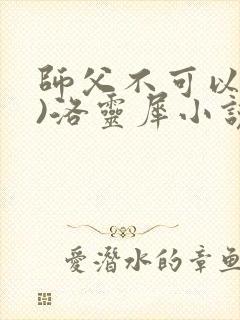 師父不可以
)洛靈犀小說
愛潛水的章魚